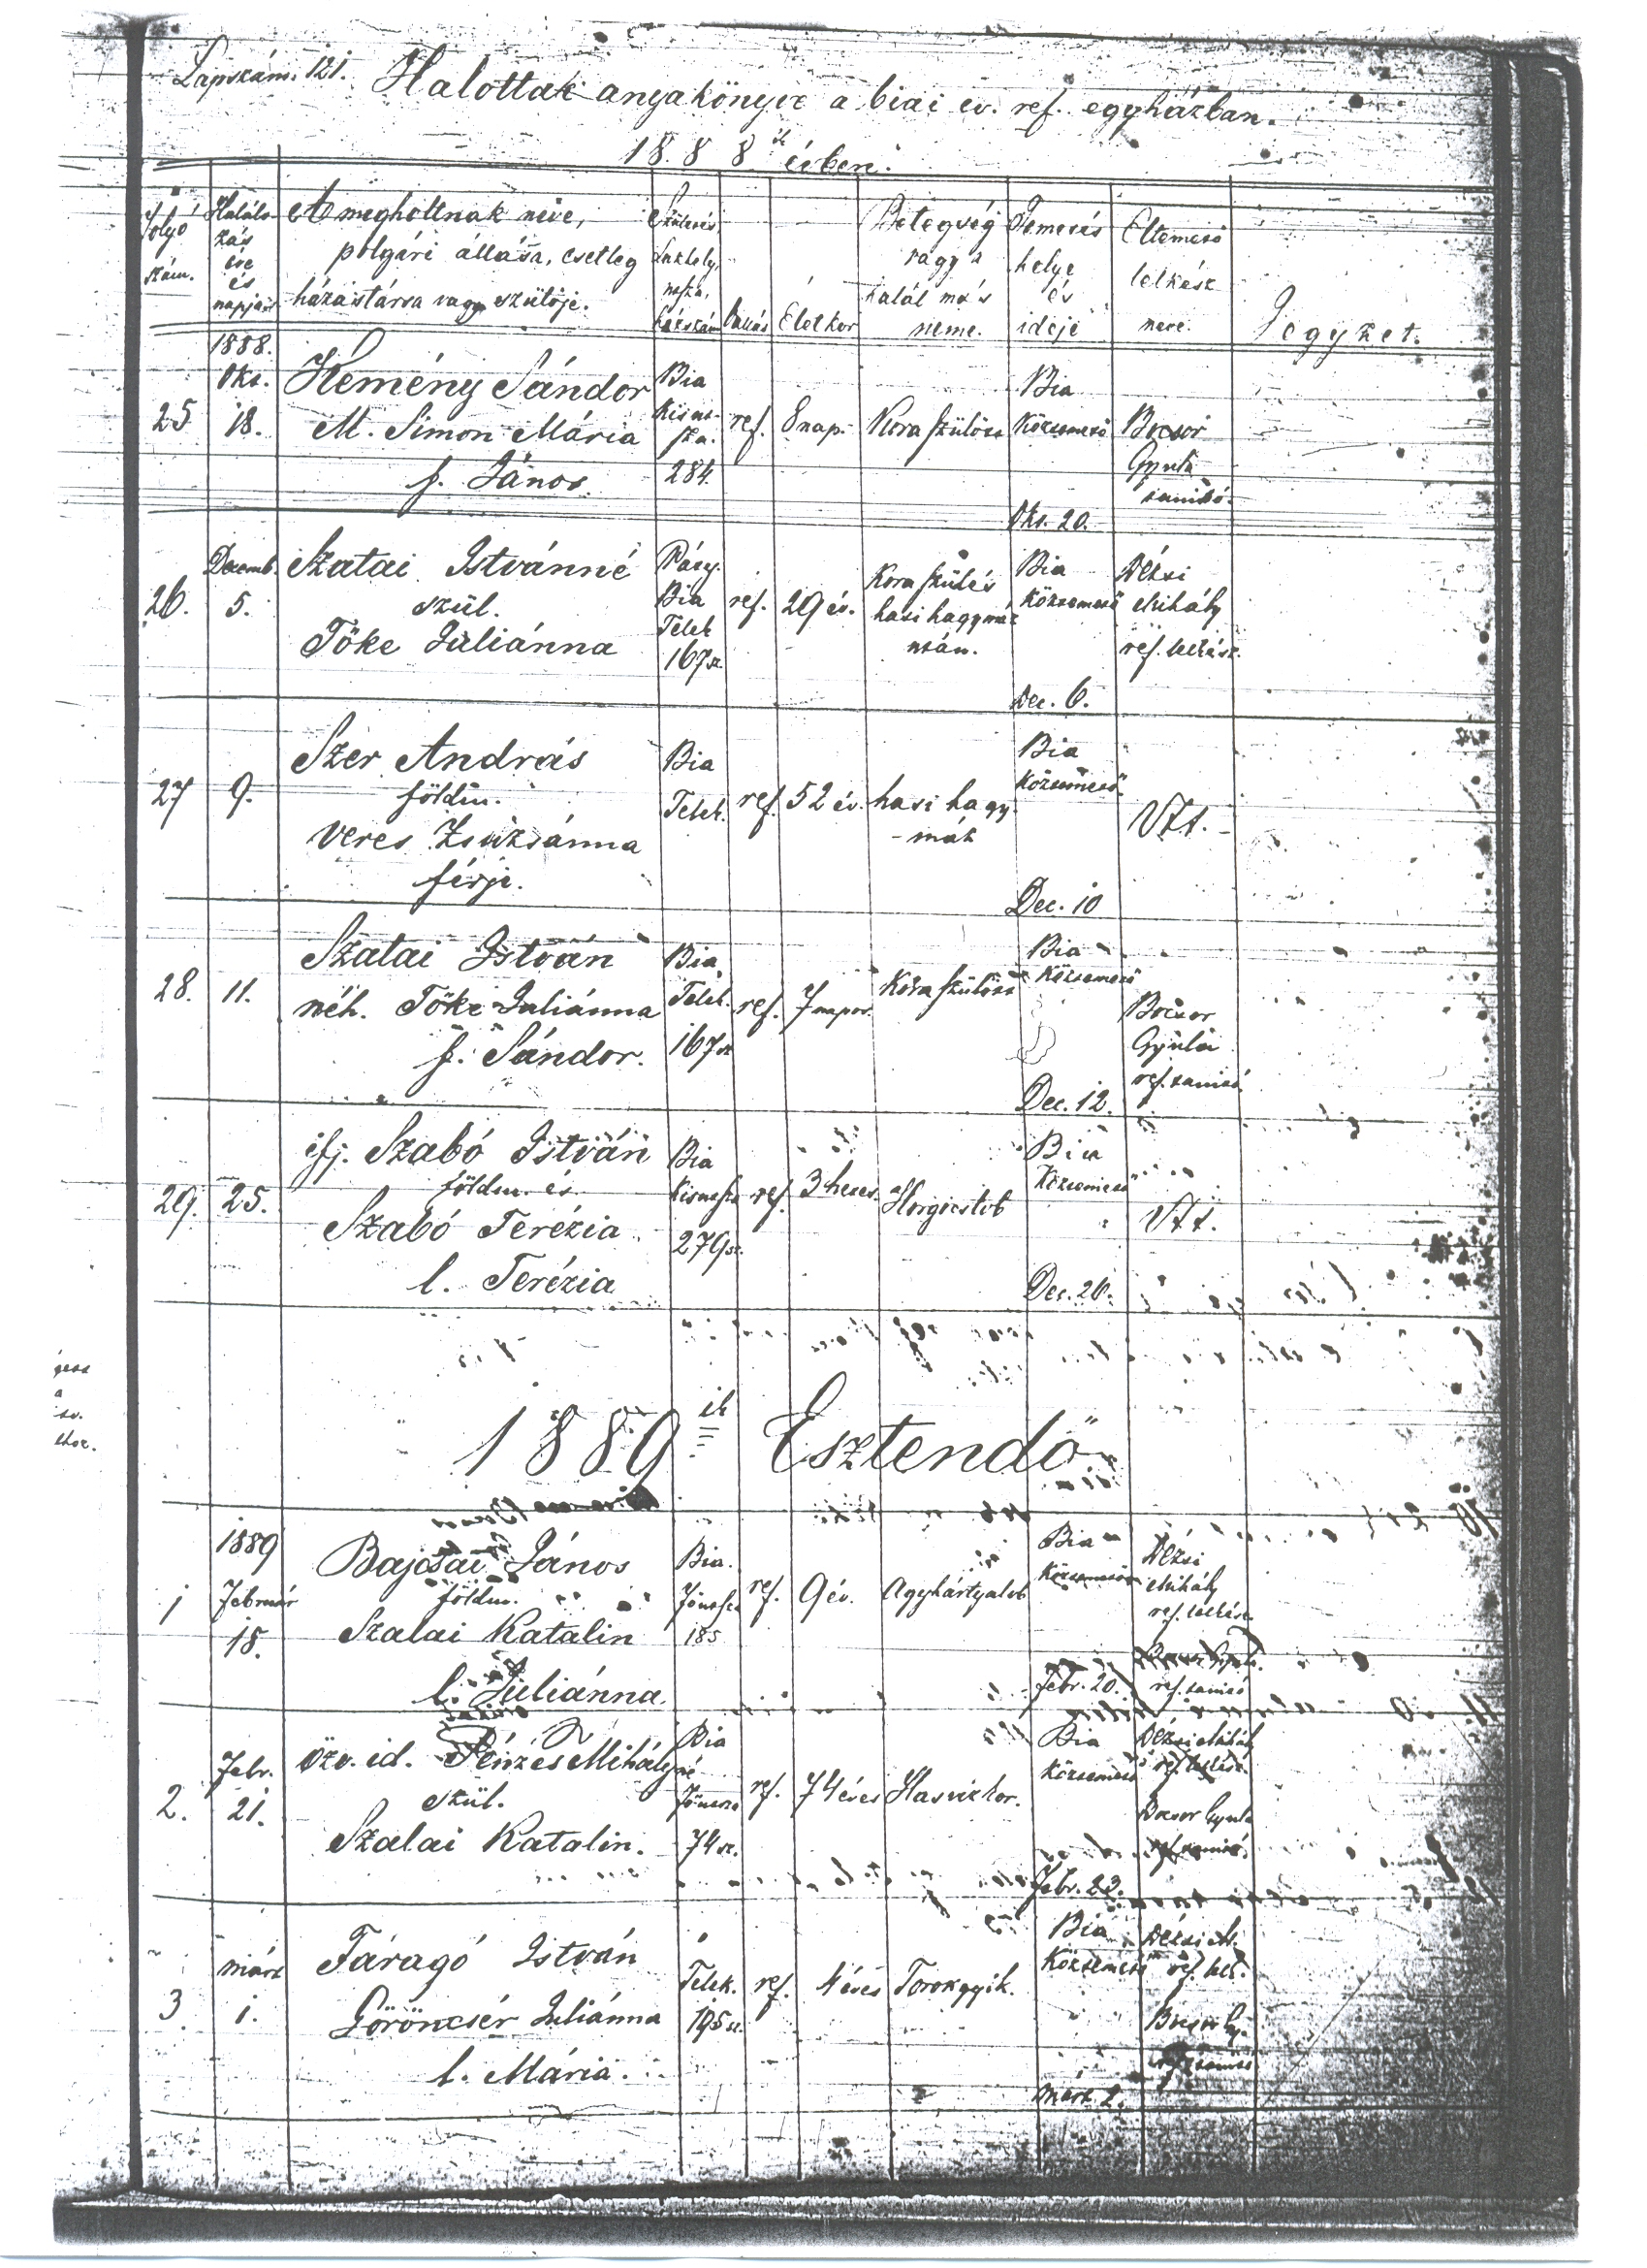 Lapszám. 121. Halottak anyakönyve a biai ev. ref. egyházban.
1888ik évben.
Folyó szám.
Halálozás éve és napja
A meghottnak neve, polgári állása, esetleg házastársa vagy szülője.
Születés, Lakhely, házszám
Vallás
Életkor
Betegség vagy a halál más neme.
Temetés helye és ideje
Eltemető lelkész neve.
Jegyzet.
25 1888. Okt. 18. Kemény Sándor
M. Simon Mária
f. János.
Bia 284. ref. 8 nap. Kora szülöss
Bia Köztemető Okt. 20.
Bocsor Gyula tanító.
26. Decemb. 5. Szatai Istvánné
szül.
Tőke Juliánna
Pázm. Bia Telek 167 sz. ref. 29 év. Kora szülés hasi hagymáz után.
Bia Köztemető Dec. 6.
Dézsi Mihály ref. lelkész.
27 9. Szer András
földm.
Veres Zsuzsánna
férje.
Bia Telek. ref. 52 év. hasi hagy-máz
Bia Köztemető Dec. 10
28. 11. Szatai István
néh. Tőke Juliánna
f. Sándor.
Bia Telek. 167 sz ref. 7 napos. Kora szülöss
Bia Köztemető Dec. 12.
Bocsor Gyula ref. tanító.
29. 25. ifj. Szabó István
földm. és
Szabó Terézia
l. Terézia
Bia 279 sz. ref. 3 hetes. Görgőcslob
Bia Köztemető Dec. 26.
1889ik Esztendő
1 1889 Február 18. Bajcsai János
földm.
Szalai Katalin
l. Juliánna.
Bia. 185 ref. 9 év. Agyhártyalob
Bia Köztemető Febr. 20.
Dézsi Mihály ref. lelkész
ref. tanító
2. Febr. 21. özv. id. Pénzes Mihályné
szül.
Szalai Katalin.
Bia 74 sz. ref. 74 éves Hasvizkor.
Bia Köztemető Febr. 23.
Dézsi Mihály ref. lelkész.
Bocsor Gyula ref. tanító.
3 márz 1. Faragó István
Göröncsér Juliánna
l. Mária.
Telek. 195 sz. ref. 4 éves Torokgyik.
Bia Köztemető márz 2.
Dézsi M. ref. lelk.
Bocsor Gy. ref. tanító